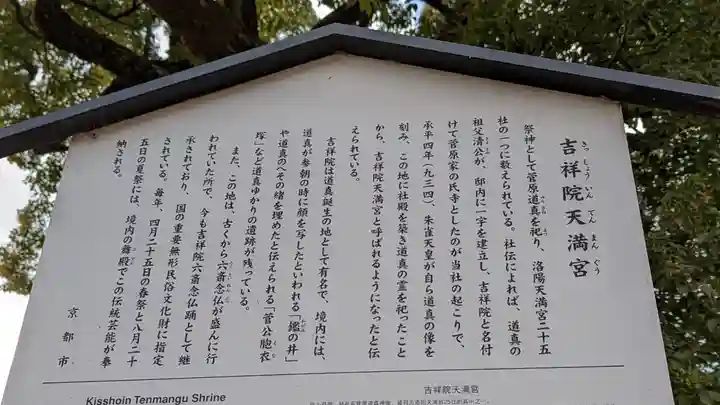 吉祥院天満宮
きっしょういんてんまんぐう
祭神として菅原道真を祀り、洛陽天満宮二十五
社の一つに数えられている。社伝によれば、道真の
祖父清公が、邸内に一宇を建立し、吉祥院と名付
けて菅原家の氏寺としたのが当社の起こりで、
承平四年（九三四）、朱雀天皇が自ら道真の像を
刻み、この地に社殿を築き道真の霊を祀ったこと
から、吉祥院天満宮と呼ばれるようになったと伝
えられている。
吉祥院は道真誕生の地として有名で、境内には、
道真が参朝の時に顔を写したといわれる「鑑の井」
や道真のへその緒を埋めたと伝えられる「菅公胞衣
塚」など道真ゆかりの遺跡が残っている。
また、この地は、古くから六斎念仏が盛んに行
われていた所で、今も吉祥院六斎念仏踊として継
承されており、国の重要無形民俗文化財に指定
されている。毎年、四月二十五日の春祭と八月二十
五日の夏祭には、境内の舞殿でこの伝統芸能が奉
納される。
京都市
Kisshoin Tenmangu Shrine
吉祥院天满宫